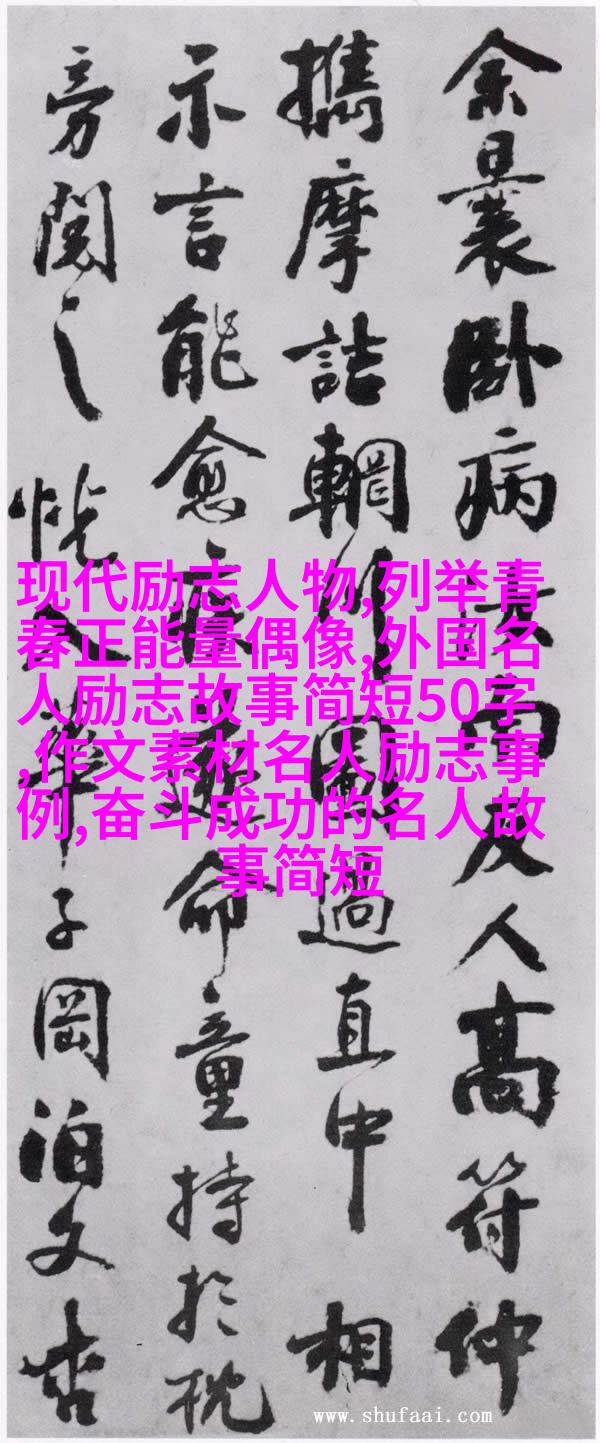 余曩卧病汝南友人高符仲
攜摩詰輞川圖過直中相
示言能愈疾遂命童持於枕
旁閱之恍入華子岡泊文杏
现代励志人物,列举青
春正能量偶像,外国名
人励志故事简短50字
,作文素材名人励志事
例,奋斗成功的名人故
事简短
www.shufaai.com